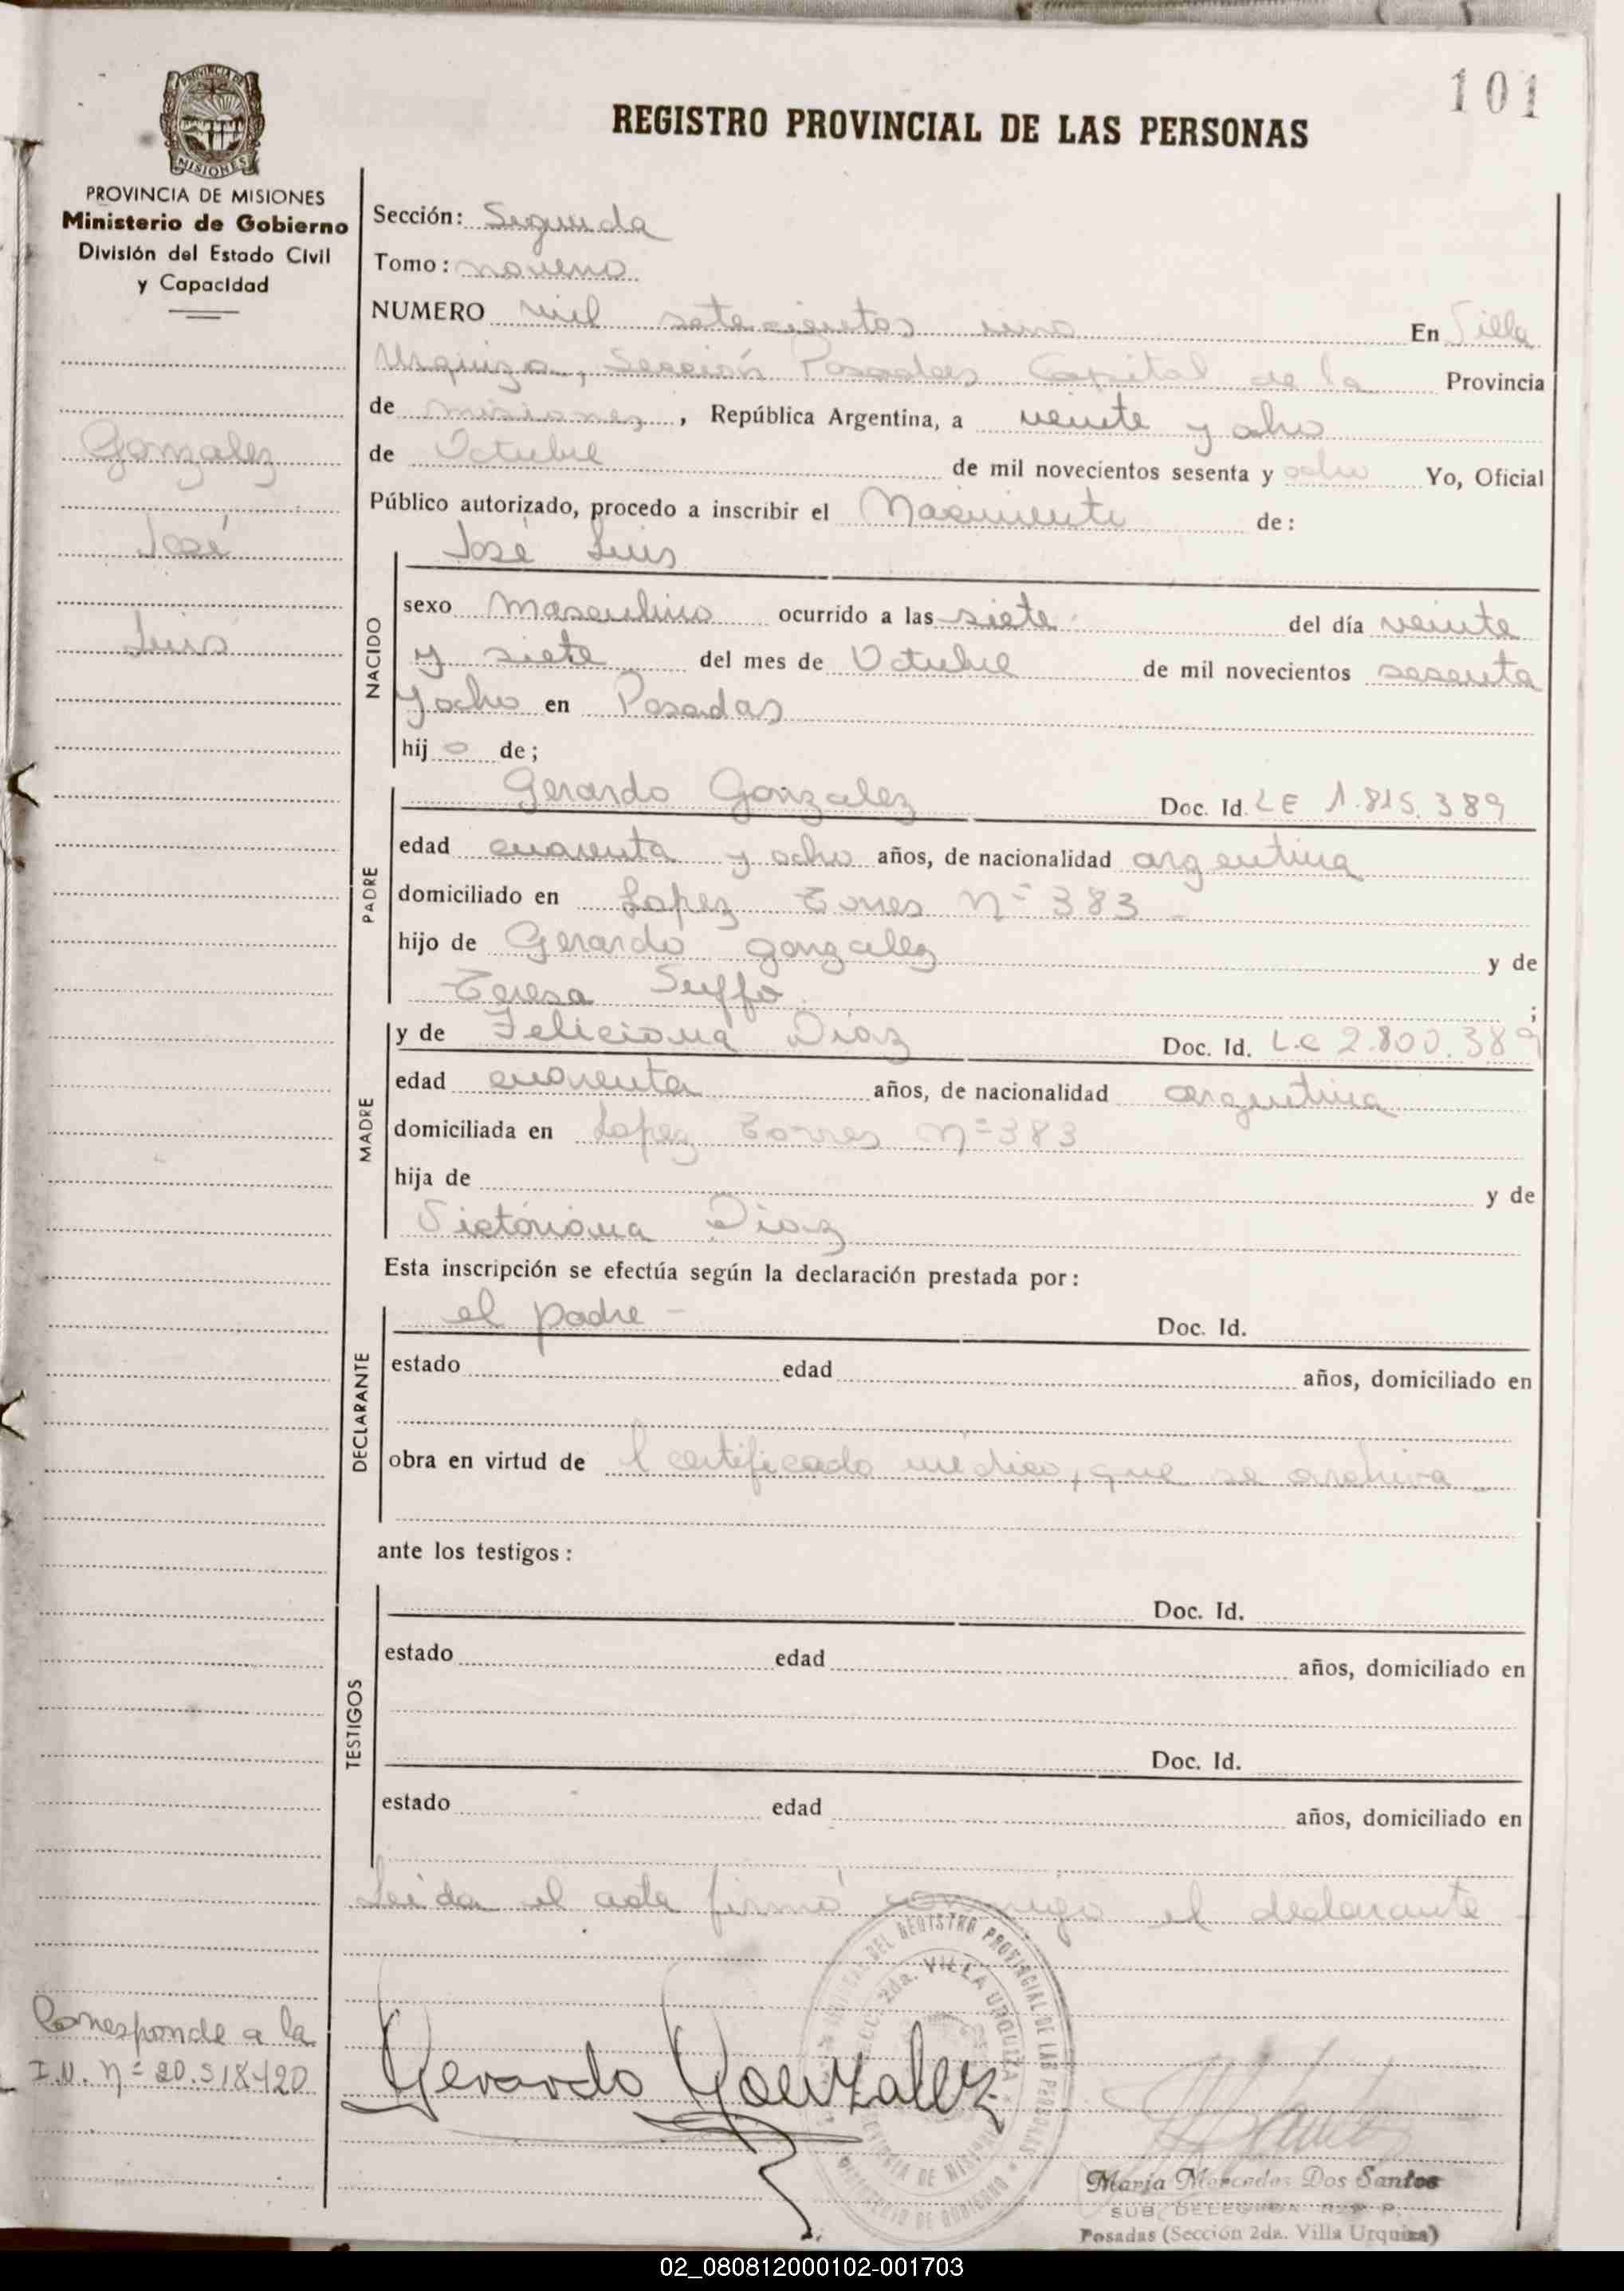 101
REGISTRO PROVINCIAL DE LAS PERSONAS
PROVINCIA DE
MISIONES
PROVINCIA DE MISIONES
Ministerio de Gobierno
División del Estado Civil
y Capacidad
Gonzalez
José
Luis
Sección: Segunda
Tomo: noveno
NUMERO mil setecientos uno En Villa
Urquiza, Sección Posadas Capital de la Provincia
de misiones, República Argentina, a veinte y ocho
de Octubre de mil novecientos sesenta y ocho Yo, Oficial
Público autorizado, procedo a inscribir el Nacimiento de:
José Luis
NACIDO
sexo masculino ocurrido a las siete del día veinte
y siete del mes de Octubre de mil novecientos sesenta
y ocho en Posadas
hij o de;
PADRE
Gerardo Gonzalez Doc. Id. LE 1.815.389
edad cuarenta y ocho años, de nacionalidad argentina
domiciliado en Lopez Torres Nº 383 -
hijo de Gerardo gonzalez y de
Teresa Suffo ;
MADRE
y de Feliciana Diaz Doc. Id. L.C 2.800.389
edad cuarenta años, de nacionalidad argentina
domiciliada en Lopez Torres Nº 383
hija de y de
Victoriana Diaz
Esta inscripción se efectúa según la declaración prestada por:
DECLARANTE
el padre - Doc. Id.
estado edad años, domiciliado en
obra en virtud de l certificado médico, que se archiva -
ante los testigos:
TESTIGOS
Doc. Id.
estado edad años, domiciliado en
Doc. Id.
estado edad años, domiciliado en
Leida el acta firmó conmigo el declarante -
Corresponde a la
I.N. nº 20.518.420
Gerardo Gonzalez
DEL REGISTRO PROVINCIAL DE LAS PERSONAS
2da. VILLA URQUIZA
MINISTERIO DE GOBIERNO
María Mercedes Dos Santos
SUB DELEGADA R. P. P.
Posadas (Sección 2da. Villa Urquiza)
02_080812000102-001703